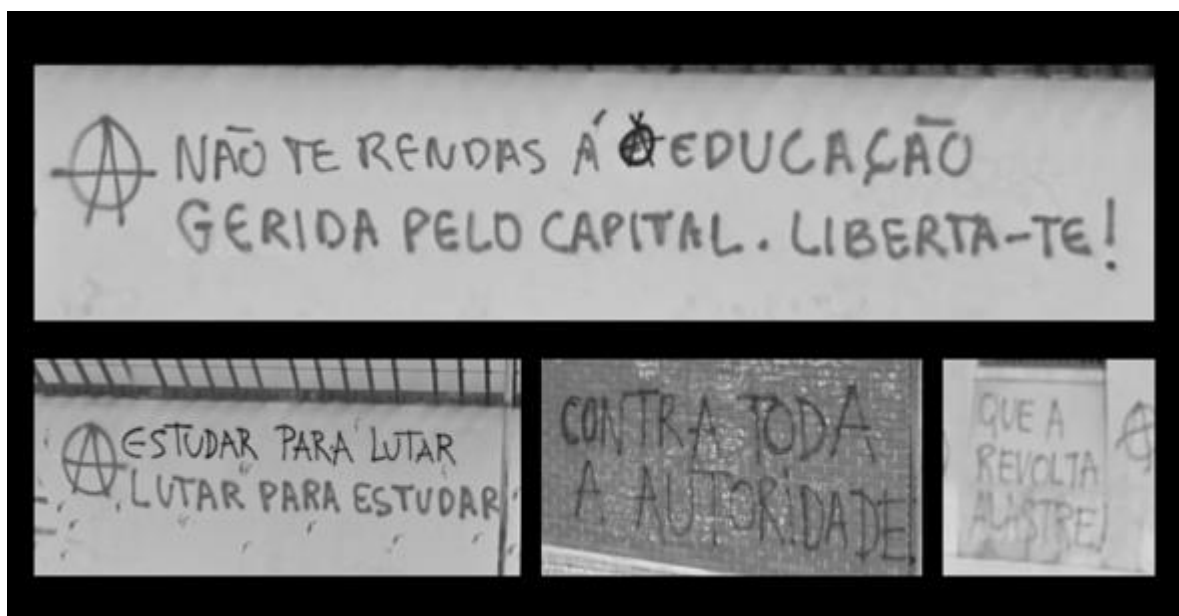 NÃO TE RENDAS Á EDUCAÇÃO
GERIDA PELO CAPITAL. LIBERTA-TE!
ESTUDAR PARA LUTAR
LUTAR PARA ESTUDAR
CONTRA TODA
A AUTORIDADE!
QUE A
REVOLTA
ALASTRE!